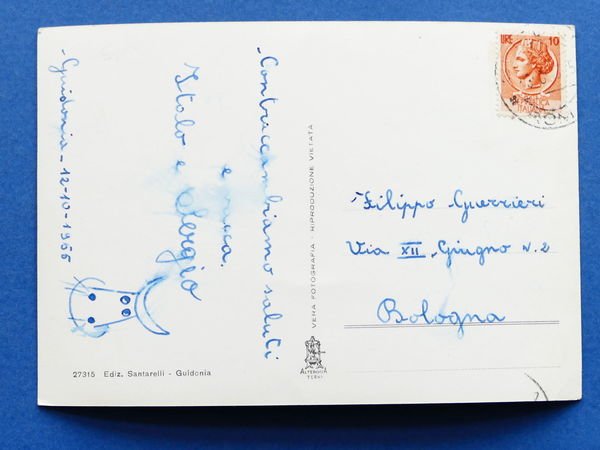 Guidonia - 12-10-1966
Contraccambiamo saluti
e
Italo e Sergio
LIRE 10
ITALIA
ROM
VERA FOTOGRAFIA - RIPRODUZIONE VIETATA
Filippo Guerrieri
Via XII Giugno n. 2
Bologna
ALTEROCCA
TERNI
27315 Ediz. Santarelli - Guidonia